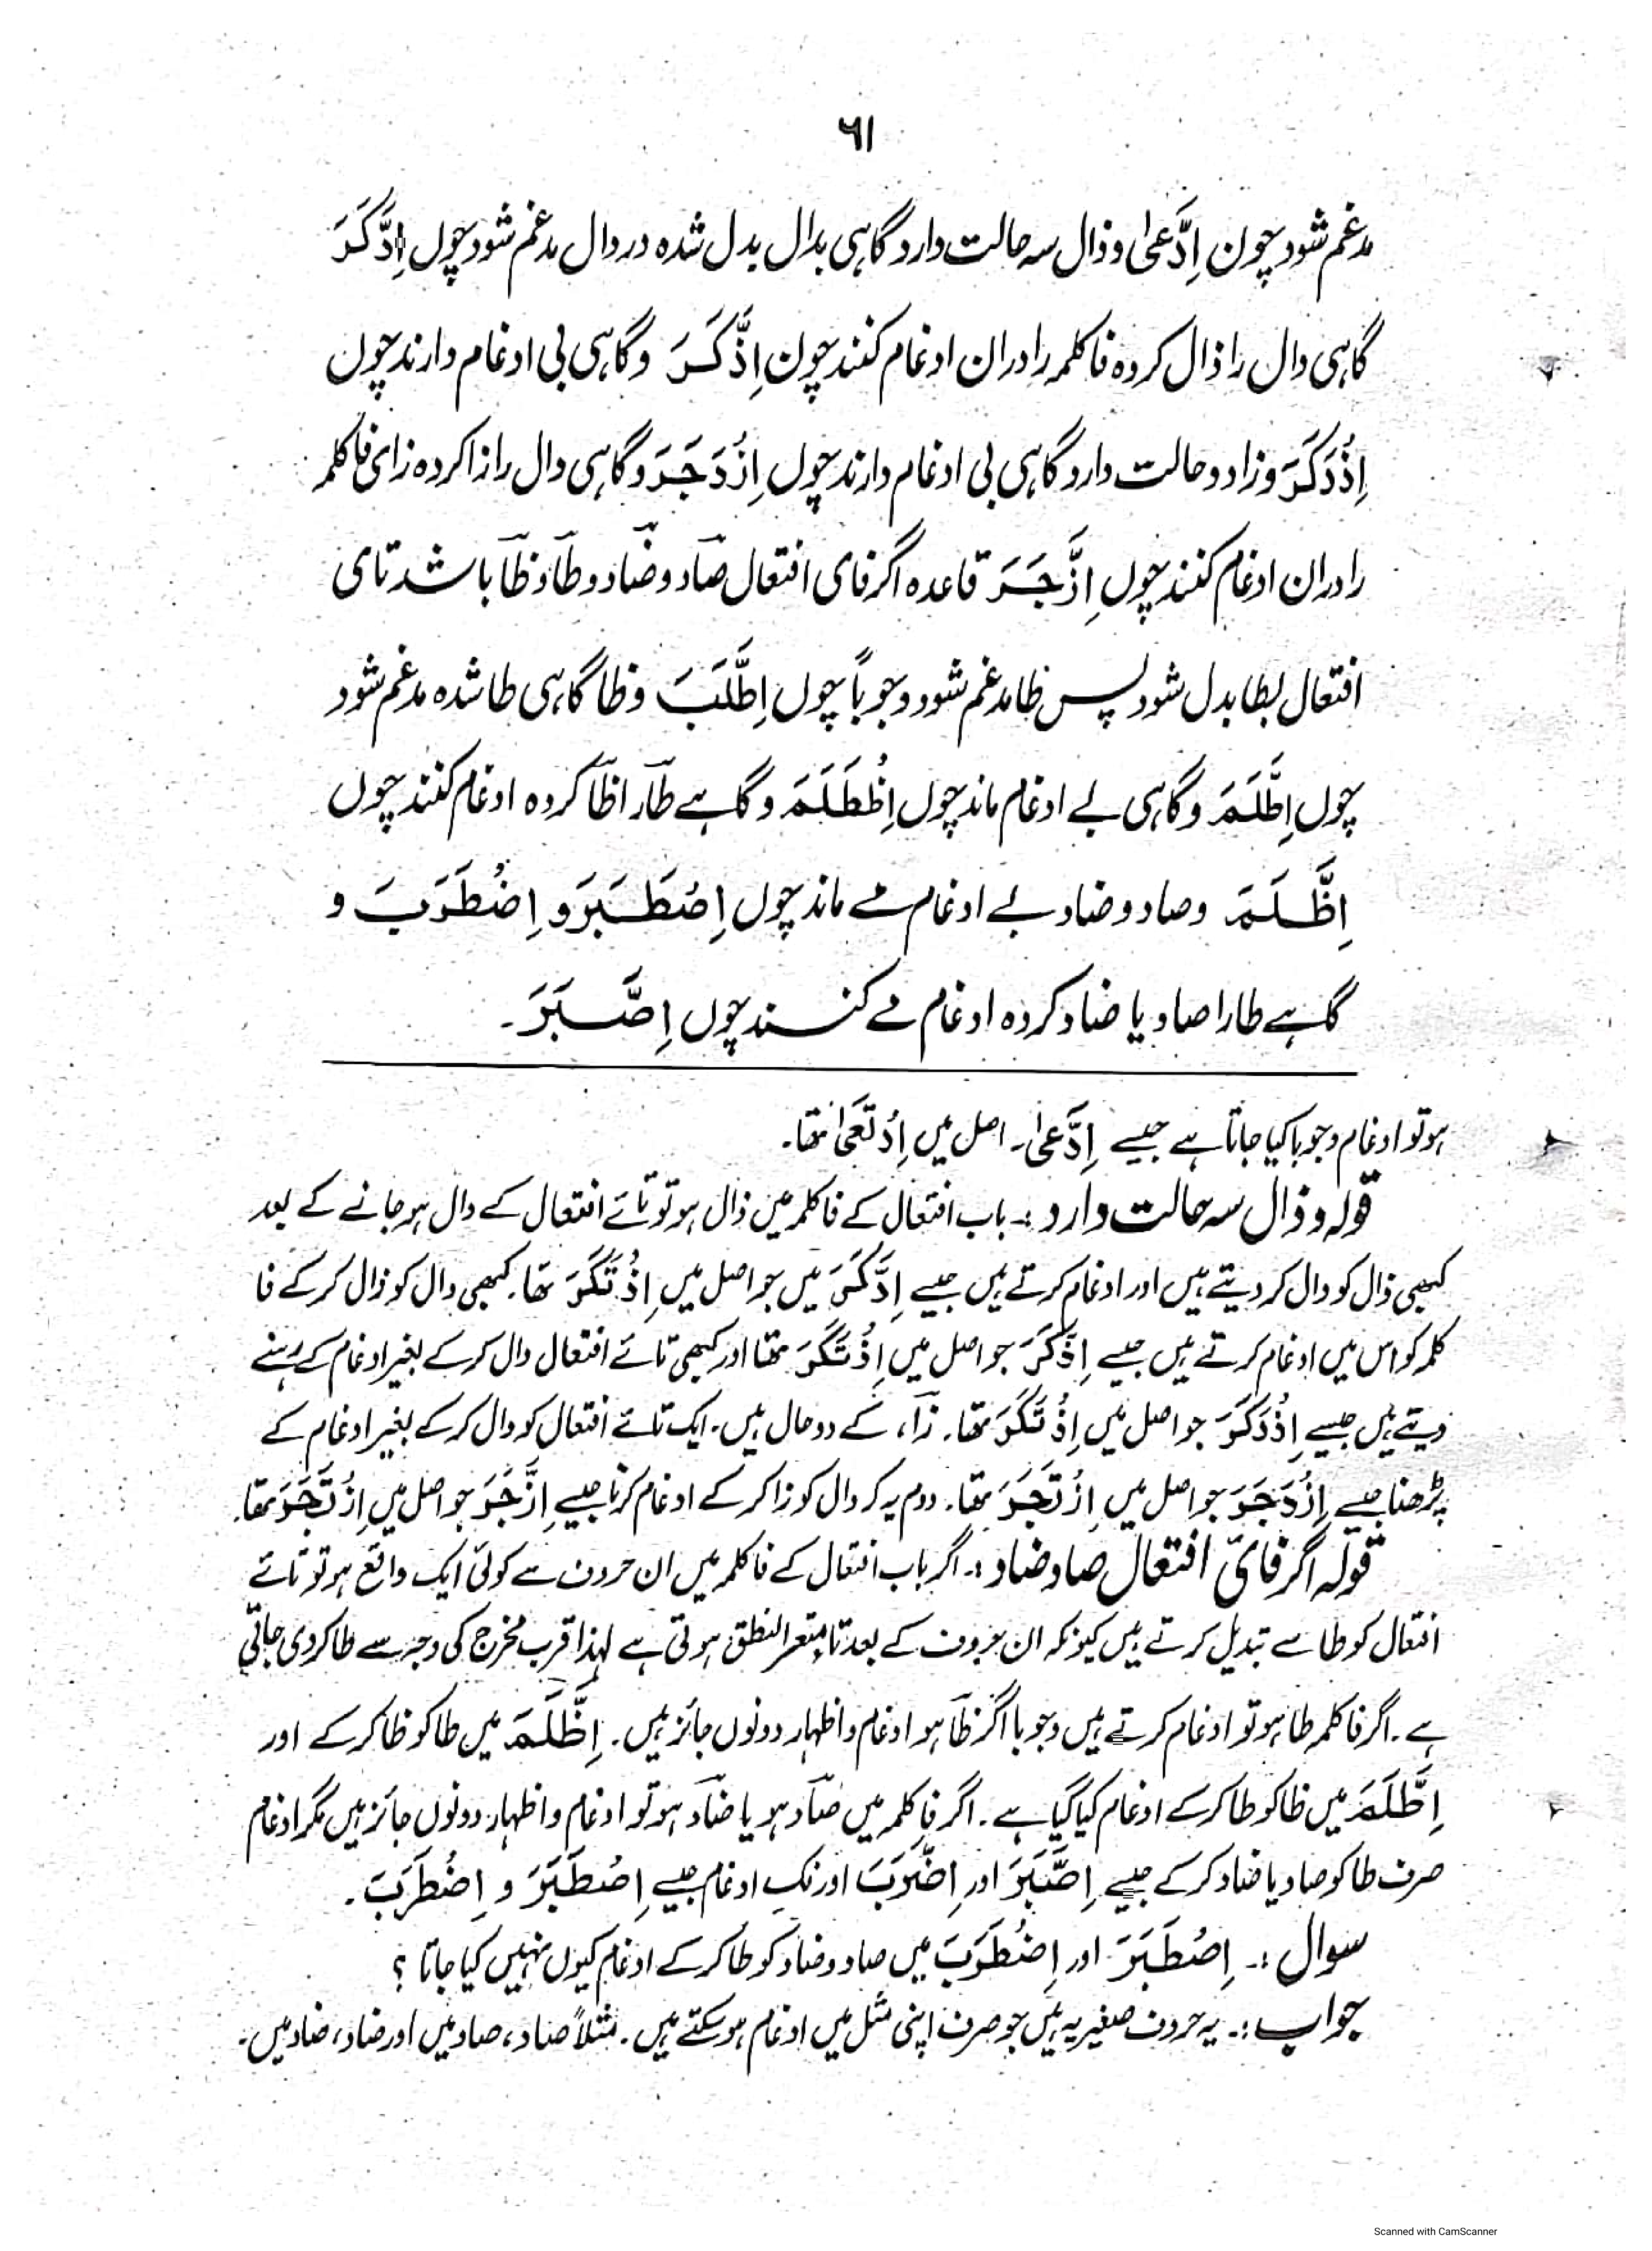 ۶۱
مدغم شود چون اِدَّعیٰ وذال سہ حالت دارد گاہی بدال بدل شدہ در دال مدغم شود چوں اِدَّکَرَ
گاہی دال را ذال کردہ فاکلمہ را دران ادغام کنند چون اِذَّکَرَ وگاہی بی ادغام دارند چون
اِذْدَکَرَ وزا دو حالت دارد گاہی بی ادغام دارند چوں اِزْدَجَرَ وگاہی دال را زا کردہ زای فاکلمہ
را دران ادغام کنند چوں اِزَّجَرَ قاعدہ اگر فای افتعال صآد وضآد وطآ وظآ باشد تای
افتعال بطا بدل شود پس طا مدغم شود وجوباً چوں اِطَّلَبَ وظا گاہی طا شدہ مدغم شود
چوں اِطَّلَمَ وگاہی بے ادغام ماند چوں اِظْطَلَمَ وگاہے طآ را ظآ کردہ ادغام کنند چوں
اِظَّلَمَ وصاد وضاد بے ادغام مے ماند چوں اِصْطَبَرَ و اِضْطَرَبَ و
گاہے طا را صاد یا ضاد کردہ ادغام مے کنند چوں اِصَّبَرَ۔
ہو تو ادغام وجوبا کیا جاتا ہے جیسے اِدَّعیٰ۔ اصل میں اِدْتَعَیٰ تھا۔
قولہ وذال سہ حالت دارد :۔ باب افتعال کے فاکلمہ میں ذال ہو تو تائے افتعال کے دال ہو جانے کے بعد
کبھی ذال کو دال کر دیتے ہیں اور ادغام کرتے ہیں جیسے اِدَّکَرَ میں جو اصل میں اِذْتَکَرَ تھا۔ کبھی دال کو ذال کر کے فا
کلمہ کو اس میں ادغام کرتے ہیں جیسے اِذَّکَرَ جو اصل میں اِذْتَکَرَ تھا اور کبھی تائے افتعال دال کر کے بغیر ادغام کے رہنے
دیتے ہیں جیسے اِذْدَکَرَ جو اصل میں اِذْتَکَرَ تھا۔ زآء کے دو حال ہیں۔ ایک تائے افتعال کو دال کر کے بغیر ادغام کے
پڑھنا جیسے اِزْدَجَرَ جو اصل میں اِزْتَجَرَ تھا۔ دوم یہ کہ دال کو زا کر کے ادغام کرنا جیسے اِزَّجَرَ جو اصل میں اِزْتَجَرَ تھا۔
قولہ اگر فائ افتعال صاد ضاد :۔ اگر باب افتعال کے فاکلمہ میں ان حروف سے کوئی ایک واقع ہو تو تائے
افتعال کو طا سے تبدیل کرتے ہیں کیونکہ ان حروف کے بعد تا متعسر النطق ہوتی ہے لہذا قرب مخرج کی وجہ سے طا کر دی جاتی
ہے۔ اگر فاکلمہ طا ہو تو ادغام کرتے ہیں وجوبا اگر ظآ ہو ادغام و اظہار دونوں جائز ہیں۔ اِظَّلَمَ میں طا کو ظا کر کے اور
اِطَّلَمَ میں ظا کو طا کر کے ادغام کیا گیا ہے۔ اگر فاکلمہ میں صآد ہو یا ضآد ہو تو ادغام و اظہار دونوں جائز ہیں مگر ادغام
صرف طا کو صاد یا ضاد کر کے جیسے اِصَّبَرَ اور اِضَّرَبَ اور فک ادغام جیسے اِصْطَبَرَ و اِضْطَرَبَ۔
سوال :۔ اِصْطَبَرَ اور اِضْطَرَبَ میں صاد وضاد کو طا کر کے ادغام کیوں نہیں کیا جاتا ؟
جواب :۔ یہ حروف صغیریہ ہیں جو صرف اپنی مثل میں ادغام ہو سکتے ہیں۔ مثلاً صاد، صاد میں اور ضاد، ضاد میں۔
Scanned with CamScanner